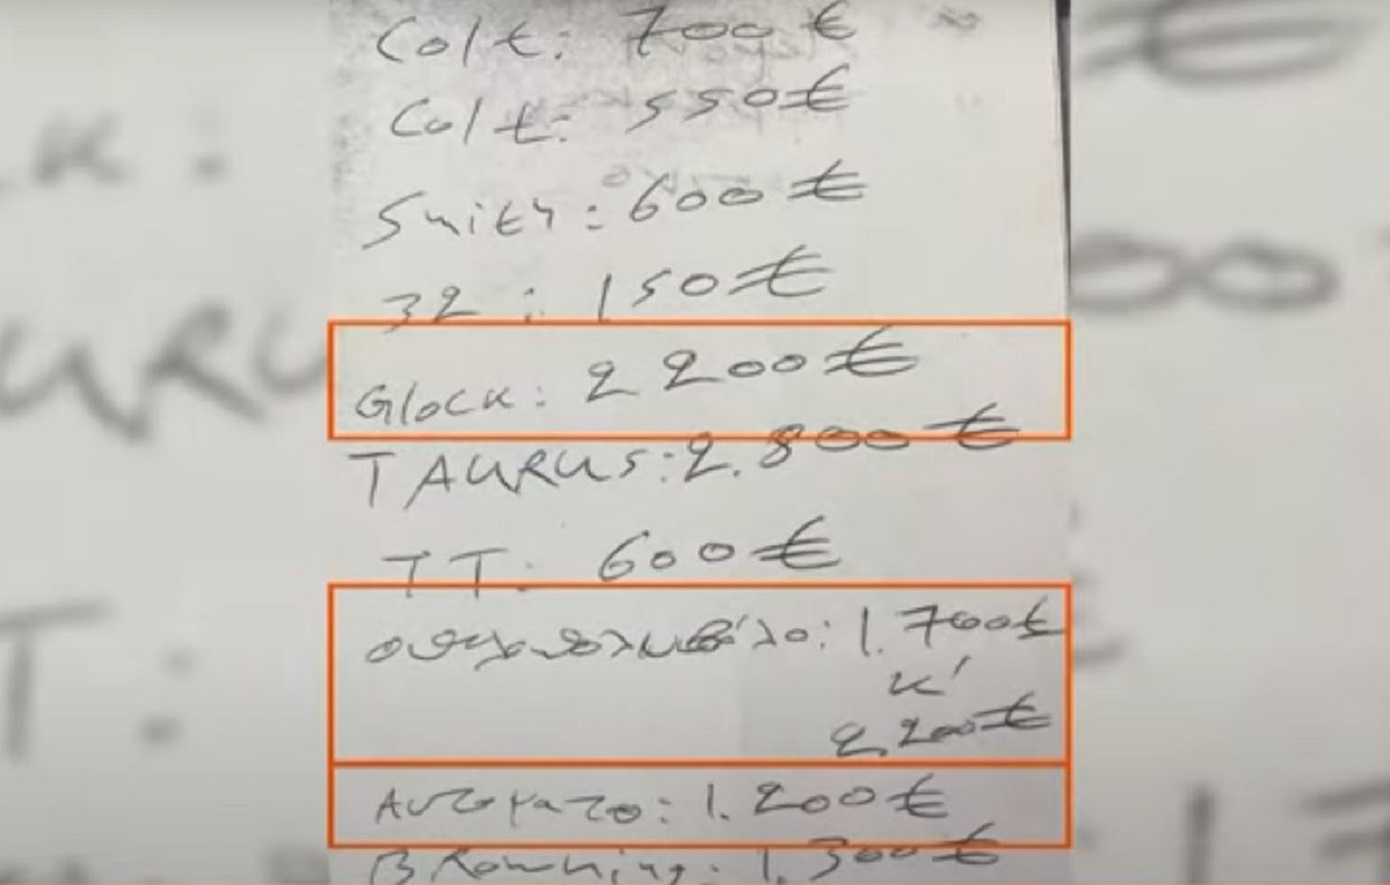 Colt: 700 €
Colt: 550€
Smith: 600 €
32 : 150€
Glock: 2200€
TAURUS: 2.800 €
TT: 600€
1.700€
κ'
2.200€
Αυτοματο: 1.200€
Browning: 1.300€